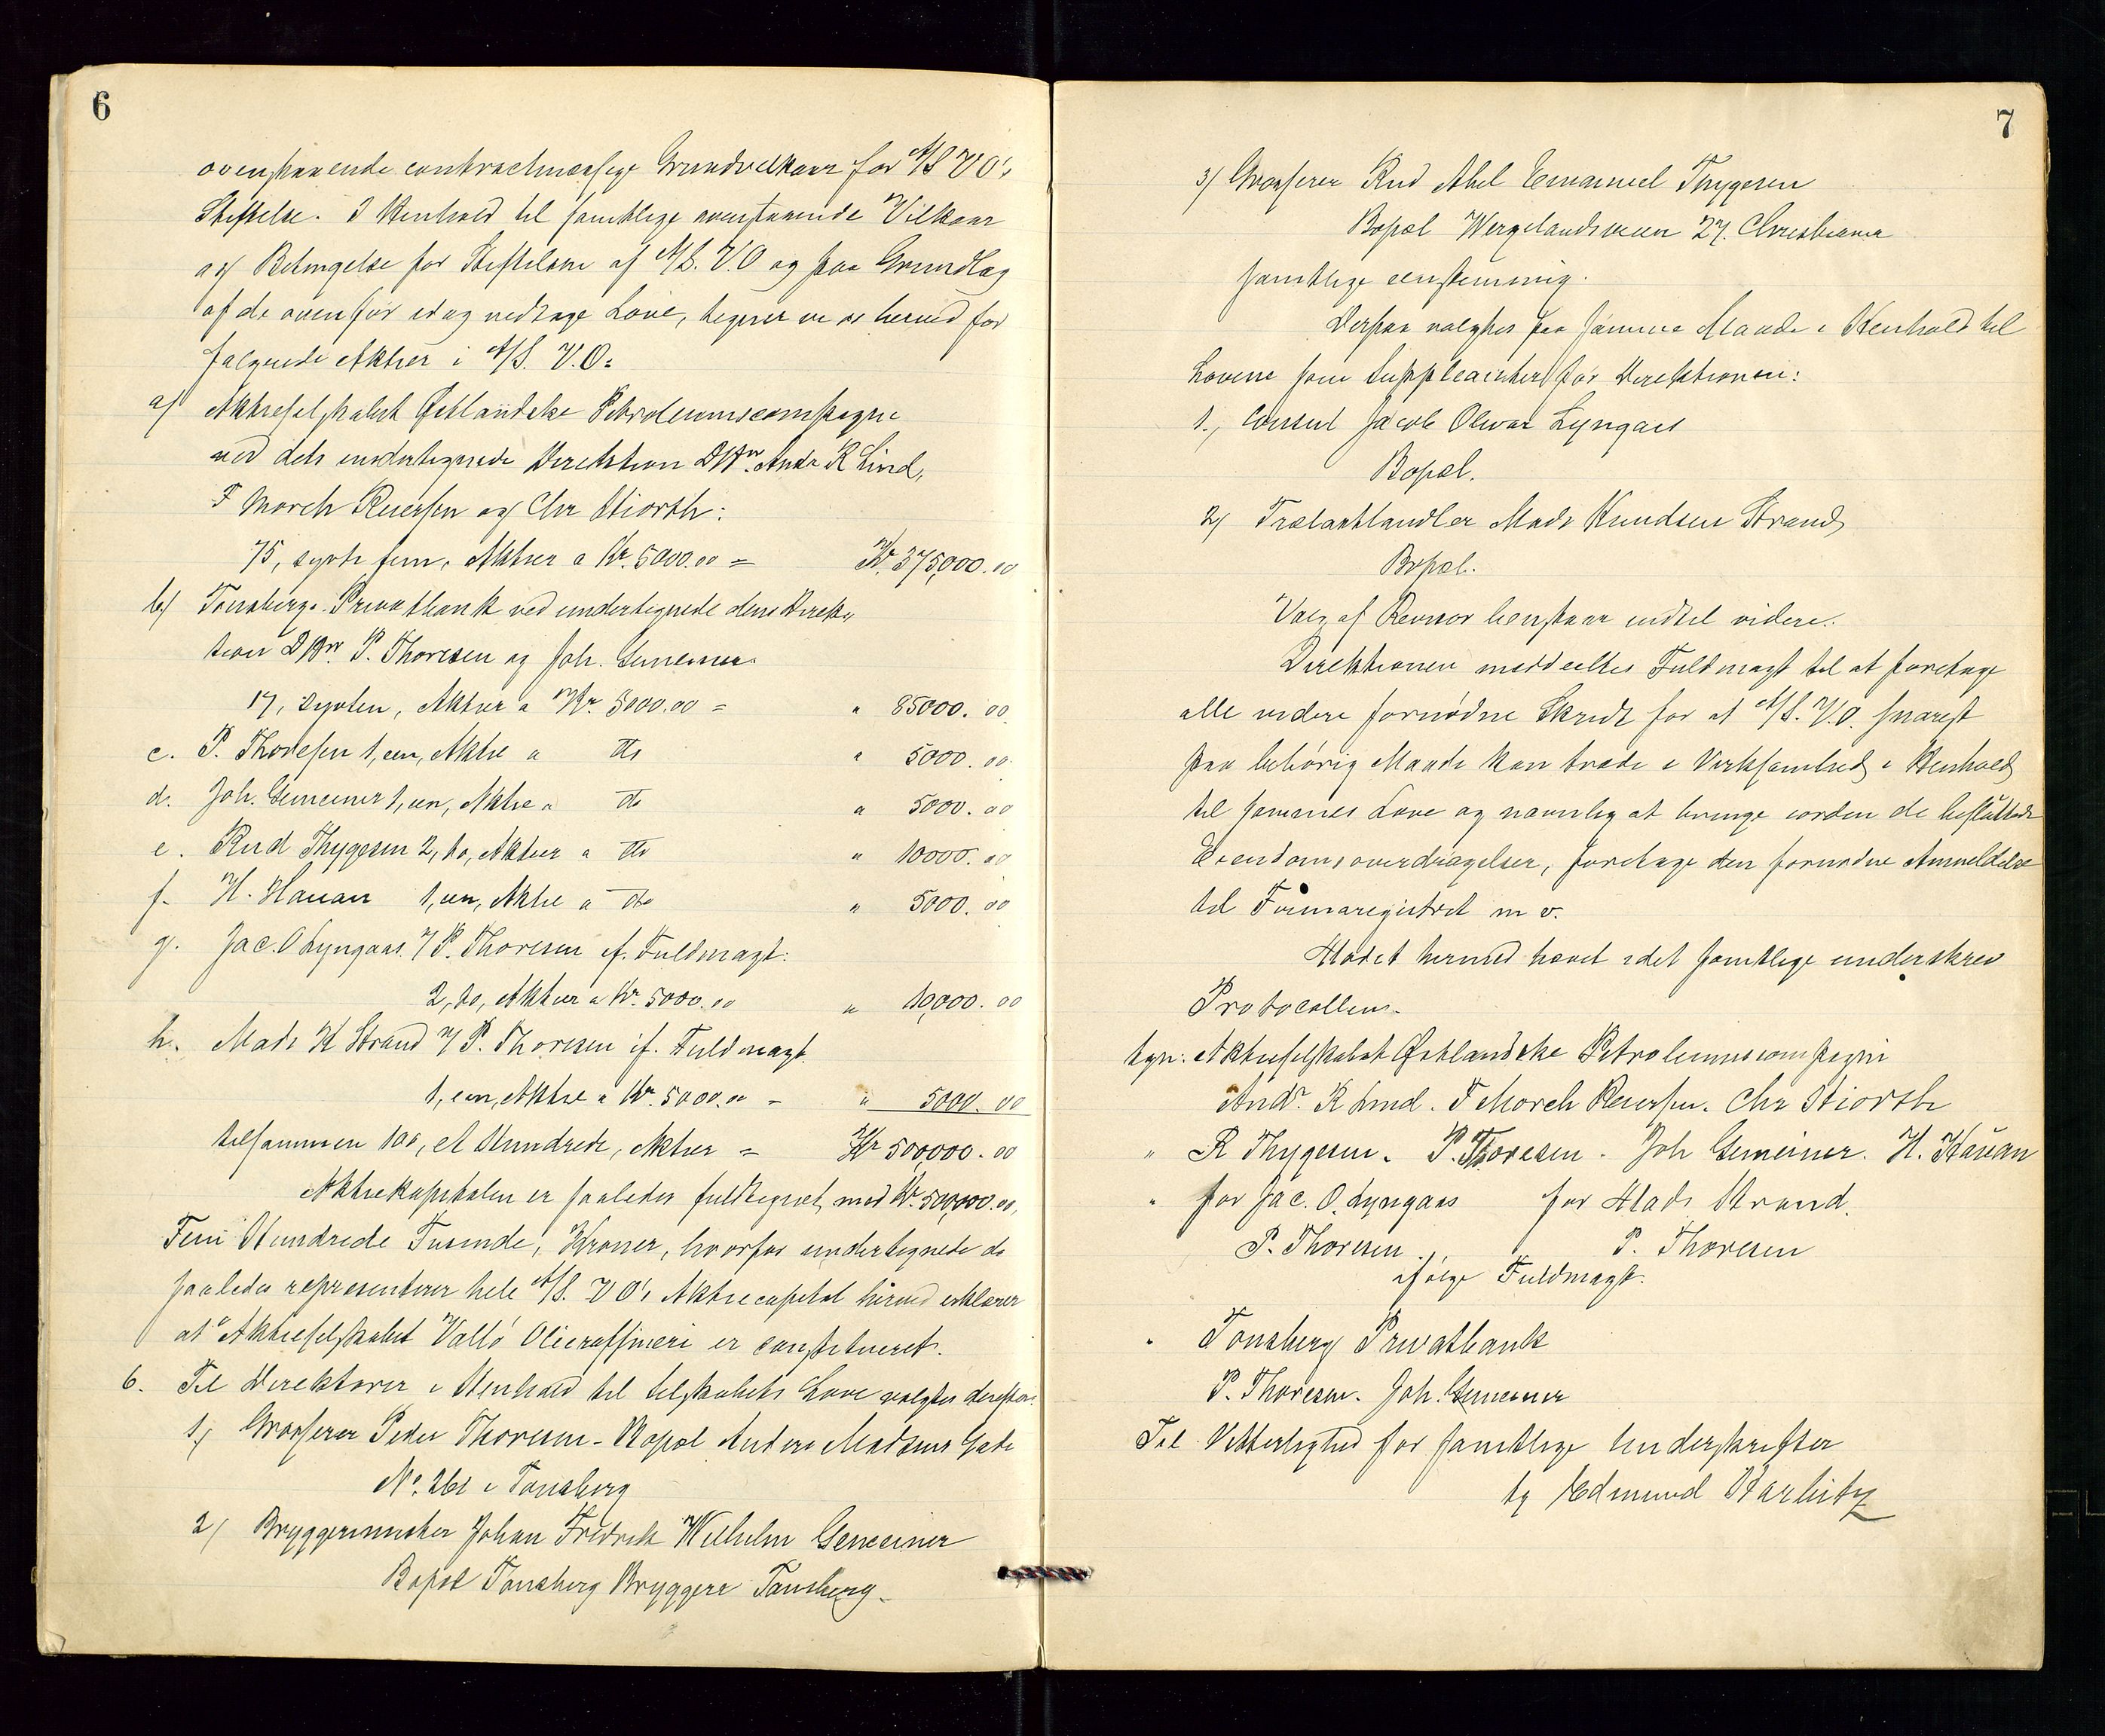 6
ovenstaaende contractmæssige Grundvilkaar for A/S V O's
Stiftelse. I Henhold til samtlige ovenstaaende Vilkaar
og Betingelse for Stiftelsen af A/S. V.O og paa Grundlag
af de ovenfor idag vedtagne Love, tegner vi os herved for
følgende Aktier i A/S. V.O:
a) Aktieselskabet Østlandske Petroleumscompagni
ved dets undertegnede Direktion DHrr. Andr K Lind,
F Morch Reiersen og Chr Stiorth:
75, sytti fem, Aktier a Kr. 5000.00 = Kr. 375,000.00
b) Tonsbergs Privatbank ved undertegnede dens Direk-
tion DHrr. P. Thoresen og Joh. Gemeiner
17, sytten, Aktier a Kr. 5000.00 = " 85000.00
c. P. Thoresen 1, een, Aktie a do " 5000.00
d. Joh. Gemeiner 1, een, Aktie a do " 5000.00
e. Rud Thygesen 2, to, Aktier a do " 10000.00
f. H. Hauan 1, een, Aktie a do " 5000.00
g. Jac. O Lyngaas v/ P. Thoresen if. Fuldmagt:
2, to, Aktier a Kr. 5000.00 " 10,000.00
h. Mads K Strand v/ P. Thoresen if. Fuldmagt.
1, een, Aktie a Kr. 5000.00 = " 5000.00
tilsammen 100, et Hundrede, Aktier = Kr 500,000.00
Aktiekapitalen er saaledes fuldtegnet med Kr. 500,000.00,
Fem Hundrede Tusinde, Kroner, hvorfor undertegnede de
saaledes representerer hele A/S. V O's Aktiecapital herved erklærer
at "Aktieselskabet Vallö Olieraffineri er constitueret.
6. Til Direktører i Henhold til selskabets Love valgtes derpaa:
1) Grosserer Peder Thoresen - Bopæl Anders Madsens Gade
No. 261 i Tonsberg
2) Bryggerimester Johan Fredrik Wilhelm Gemeiner
Bopæl Tonsberg Bryggeri Tonsberg.
7
3) Grosserer Rud Abel Emanuel Thygesen
Bopæl Wergelandsveien 27. Christiania
samtlige eenstemmig.
Derpaa valgtes paa samme Maade i Henhold til
Lovene som Suppleanter for Direktionen:
1., Consul Jacob Olivar Lyngaas
Bopæl.
2) Trælasthandler Mads Knudsen Strand
Bopæl.
Valg af Revisor henstaar indtil videre.
Direktionen meddeeltes Fuldmagt til at foretage
alle videre fornødne Skridt for at A/S. V.O. snarest
paa behörig Maade kan træde i Virksomhed i Henhold
til sammes Love og navnlig at bringe iorden de besluttede
Eiendomsoverdragelser, foretage den fornødne Anmeldelse
til Firmaregistret m v.
Mødet hermed hævet idet samtlige underskrev
Protocollen.
sign: Aktieselskabet Østlandske Petroleumscompagni
Andr. K Lind. F Morch Reiersen. Chr Stiorth
" R Thygesen. P. Thoresen. Joh Gemeiner. H. Hauan
" for Jac. O. Lyngaas for Mads Strand.
P. Thoresen P. Thoresen
ifølge Fuldmagt.
" Tonsberg Privatbank
P. Thoresen. Joh. Gemeiner
Til Vitterlighed for samtlige Underskrifter
Edmund Harbitz